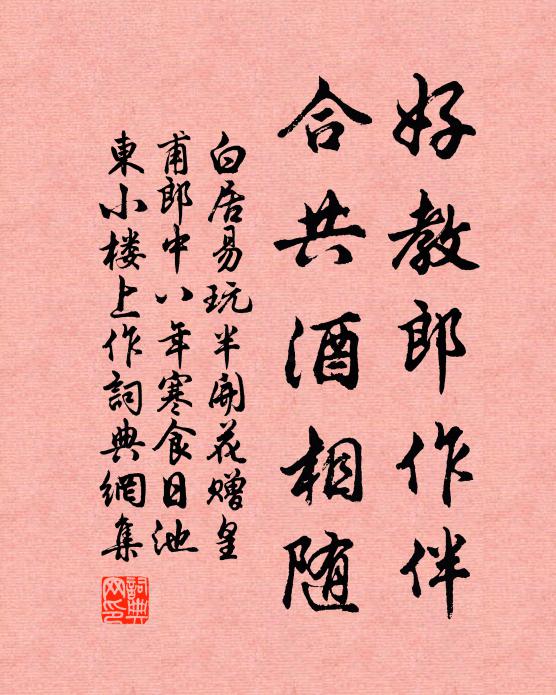 好教郎作伴
合共酒相随
白居易玩半開花赠皇
甫郎中八年寒食日池
東小楼上作詞典網集
詞典
网印